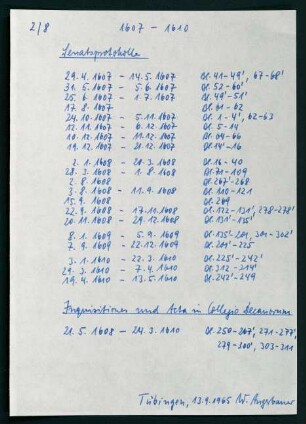 2/8 1607 - 1610
Senatsprotokolle
29. 4. 1607 - 14. 5. 1607 Bl. 41-49', 67-68'
31. 5. 1607 - 5. 6. 1607 Bl. 52-60'
25. 6. 1607 - 1. 7. 1607 Bl. 49'-51'
17. 8. 1607 Bl. 61-62
24. 10. 1607 - 5. 11. 1607 Bl. 1-4', 62-63
12. 11. 1607 - 6. 12. 1607 Bl. 5-14
10. 12. 1607 - 17. 12. 1607 Bl. 64-66
19. 12. 1607 - 20. 12. 1607 Bl. 14'-16
2. 1. 1608 - 20. 3. 1608 Bl. 16-40
28. 3. 1608 - 1. 8. 1608 Bl. 71-109
2. 8. 1608 Bl. 267'-268
3. 8. 1608 - 11. 9. 1608 Bl. 110-121
15. 9. 1608 Bl. 269
22. 9. 1608 - 17. 11. 1608 Bl. 122-131', 278-278'
20. 11. 1608 - 29. 12. 1608 Bl. 131'-135'
8. 1. 1609 - 5. 9. 1609 Bl. 135'-201, 301-302'
7. 9. 1609 - 22. 12. 1609 Bl. 201'-225
3. 1. 1610 - 22. 3. 1610 Bl. 225'-242'
29. 3. 1610 - 7. 4. 1610 Bl. 312-314'
19. 4. 1610 - 13. 5. 1610 Bl. 242'-249
Inquisitiones und Acta in Collegio Decanorum
21. 5. 1608 - 24. 3. 1610 Bl. 250-267', 271-277',
279-300', 303-311
Tübingen, 13. 9. 1965 W. Angerbauer